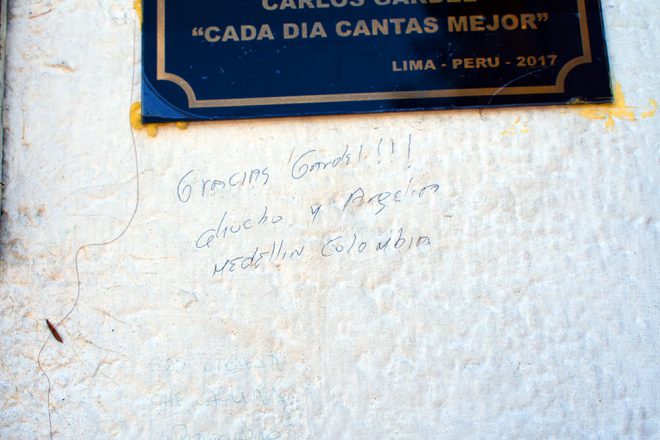 CARLOS GARDEL
“CADA DIA CANTAS MEJOR”
LIMA - PERU - 2017
Gracias Gardel!!!
Chucho y Argelia
Medellin Colombia